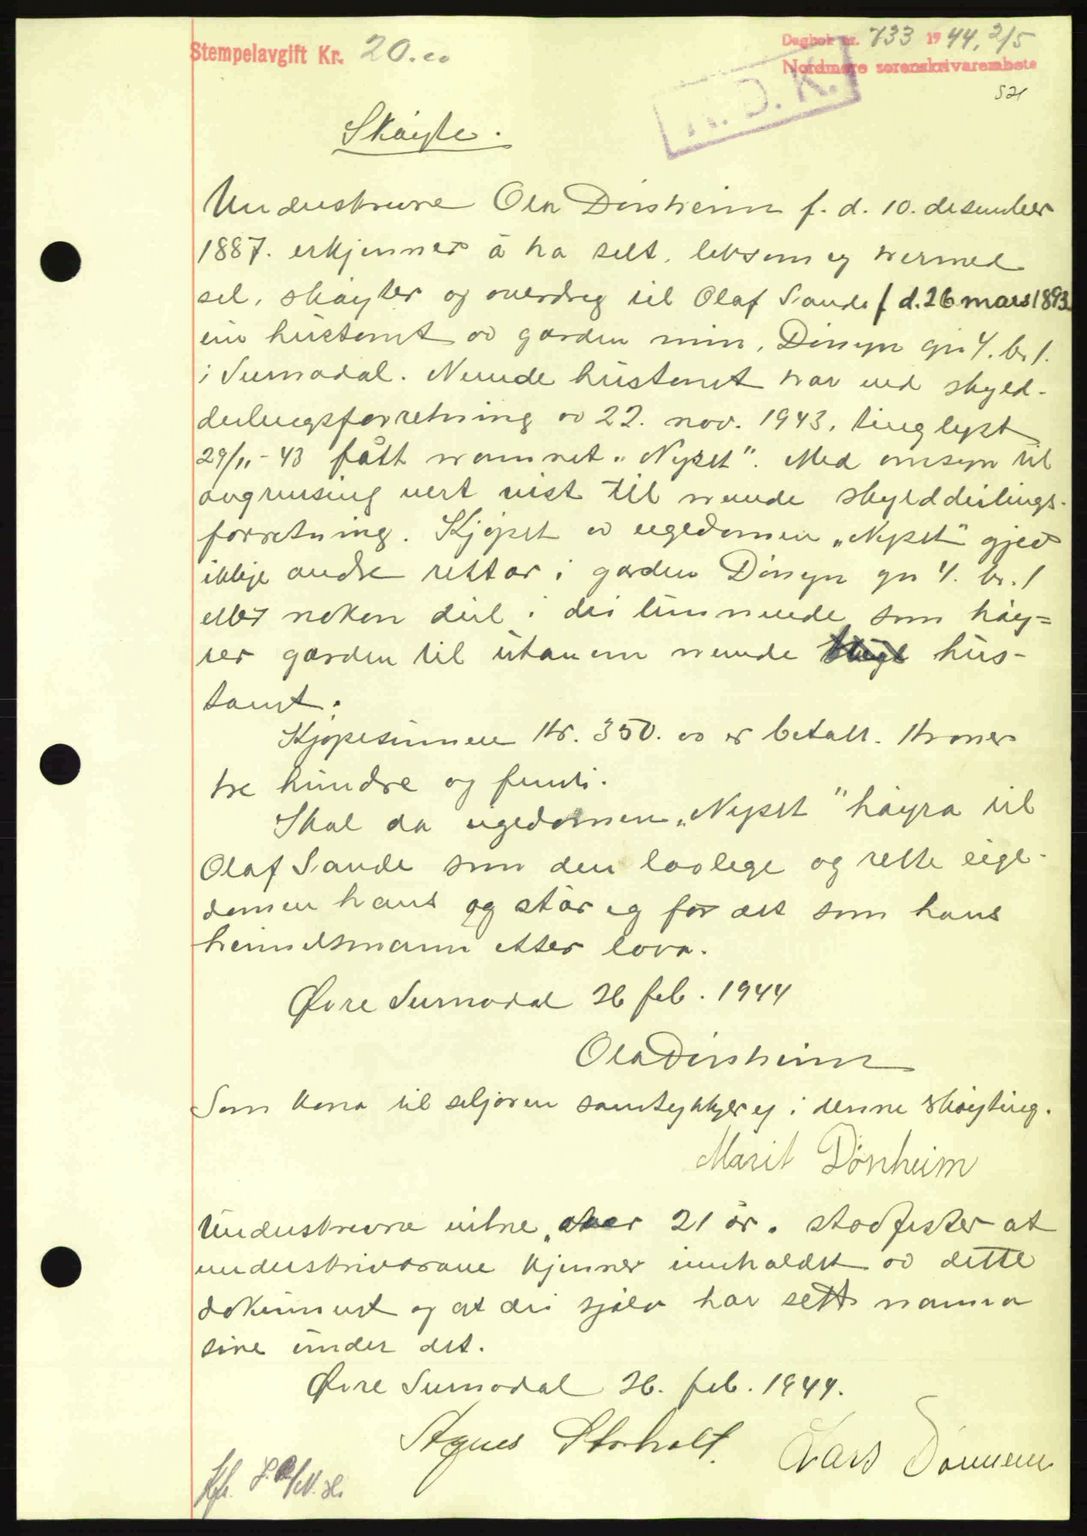 Stempelavgift Kr. 20.00
Dagbok nr. 733 1944, 2/5
Nordmøre sorenskrivarembete
521
R. D. K.
Skøyte.
Underskrevne Ola Dønheim f. d. 10. desember
1887. erkjenner å ha selt, liksom eg hermed
sel, skøyter og overdreg til Olaf Sande f d. 26 mars 1893
ein hustomt av garden min, Dønen gn 4. br 1.
i Surnadal. Nemde hustomt har ved skyld-
delingsforretning av 22. nov. 1943, tinglyst
29/11-43 fått namnet „Nyset". Med omsyn til
avgrensing vert vist til nemde skylddelings-
forretning. Kjøpet av eigedomen „Nyset" gjev
ikkje andre rettar i garden Dønen gn 4. br. 1
eller nokon deil i dei limnende som høy-
rer garden til utanom nemde hus-
tomt.
Kjøpesumen kr. 350.00 er betalt. Kroner
tre hundre og femti.
Skal da eigedomen „Nyset" høyra til
Olaf Sande som den lovlege og rette eige-
domen hans og står eg for det som hans
heimelsmann etter lova.
Øvre Surnadal 26 feb. 1944
Ola Dønheim
Som kona til seljaren samtykkjer eg i denne skøyting.
Marit Dønheim
Underskrevne vitne, over 21 år. stadfester at
underskrivarane kjenner innhaldet av dette
dokument og at dei sjølv har sett namna
sine under det.
Øvre Surnadal 26. feb. 1944.
Agnes Storholt. Lars Dønnem